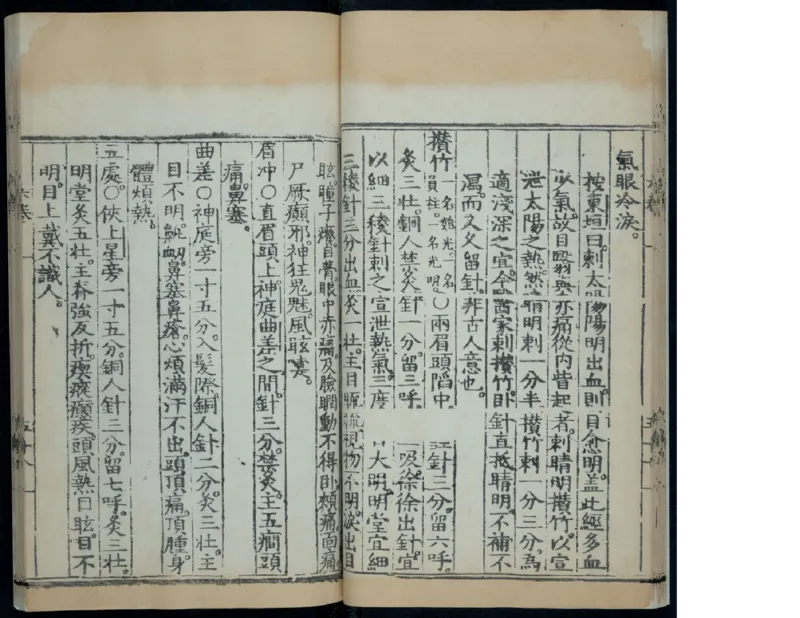 氣眼冷淚。
按東垣曰。刺太陽陽明出血。則目愈明。蓋此經多血
少氣。故目翳與赤痛從內眥起者。刺睛明攢竹。以宣
泄太陽之熱。然睛明刺一分半。攢竹刺一分三分。為
適淺深之宜。今醫家刺攢竹。卧針直抵睛明。不補不
瀉。而又久留針。非古人意也。
攢竹一名始光。一名員柱。一名光明。〇兩眉頭陷中。針三分。留六呼。
灸三壯。銅人禁灸。針一分。留三呼。吸。徐徐出針。宜
以細三稜針刺之。宣泄熱氣。三度大明。明堂宜細
三稜針三分出血。灸一壯。主目視物不明。淚出目
眩。瞳子癢。目瞢。眼中赤痛。及臉瞤動不得卧。頰痛。面痛。
尸厥癲邪。神狂鬼魅。風眩嚏。
眉冲〇直眉頭上。神庭曲差之間。針三分。禁灸。主五癇頭
痛。鼻塞。
曲差〇神庭旁一寸五分。入髮際。銅人針二分。灸三壯。主
目不明。鼽衄。鼻塞鼻瘡。心煩滿。汗不出。頭頂痛。頂腫。身
體煩熱。
五處〇俠上星旁一寸五分。銅人針三分。留七呼。灸三壯。
明堂灸五壯。主脊強反折。瘈瘲癲疾。頭風熱。目眩。目不
明。目上戴不識人。
五十八